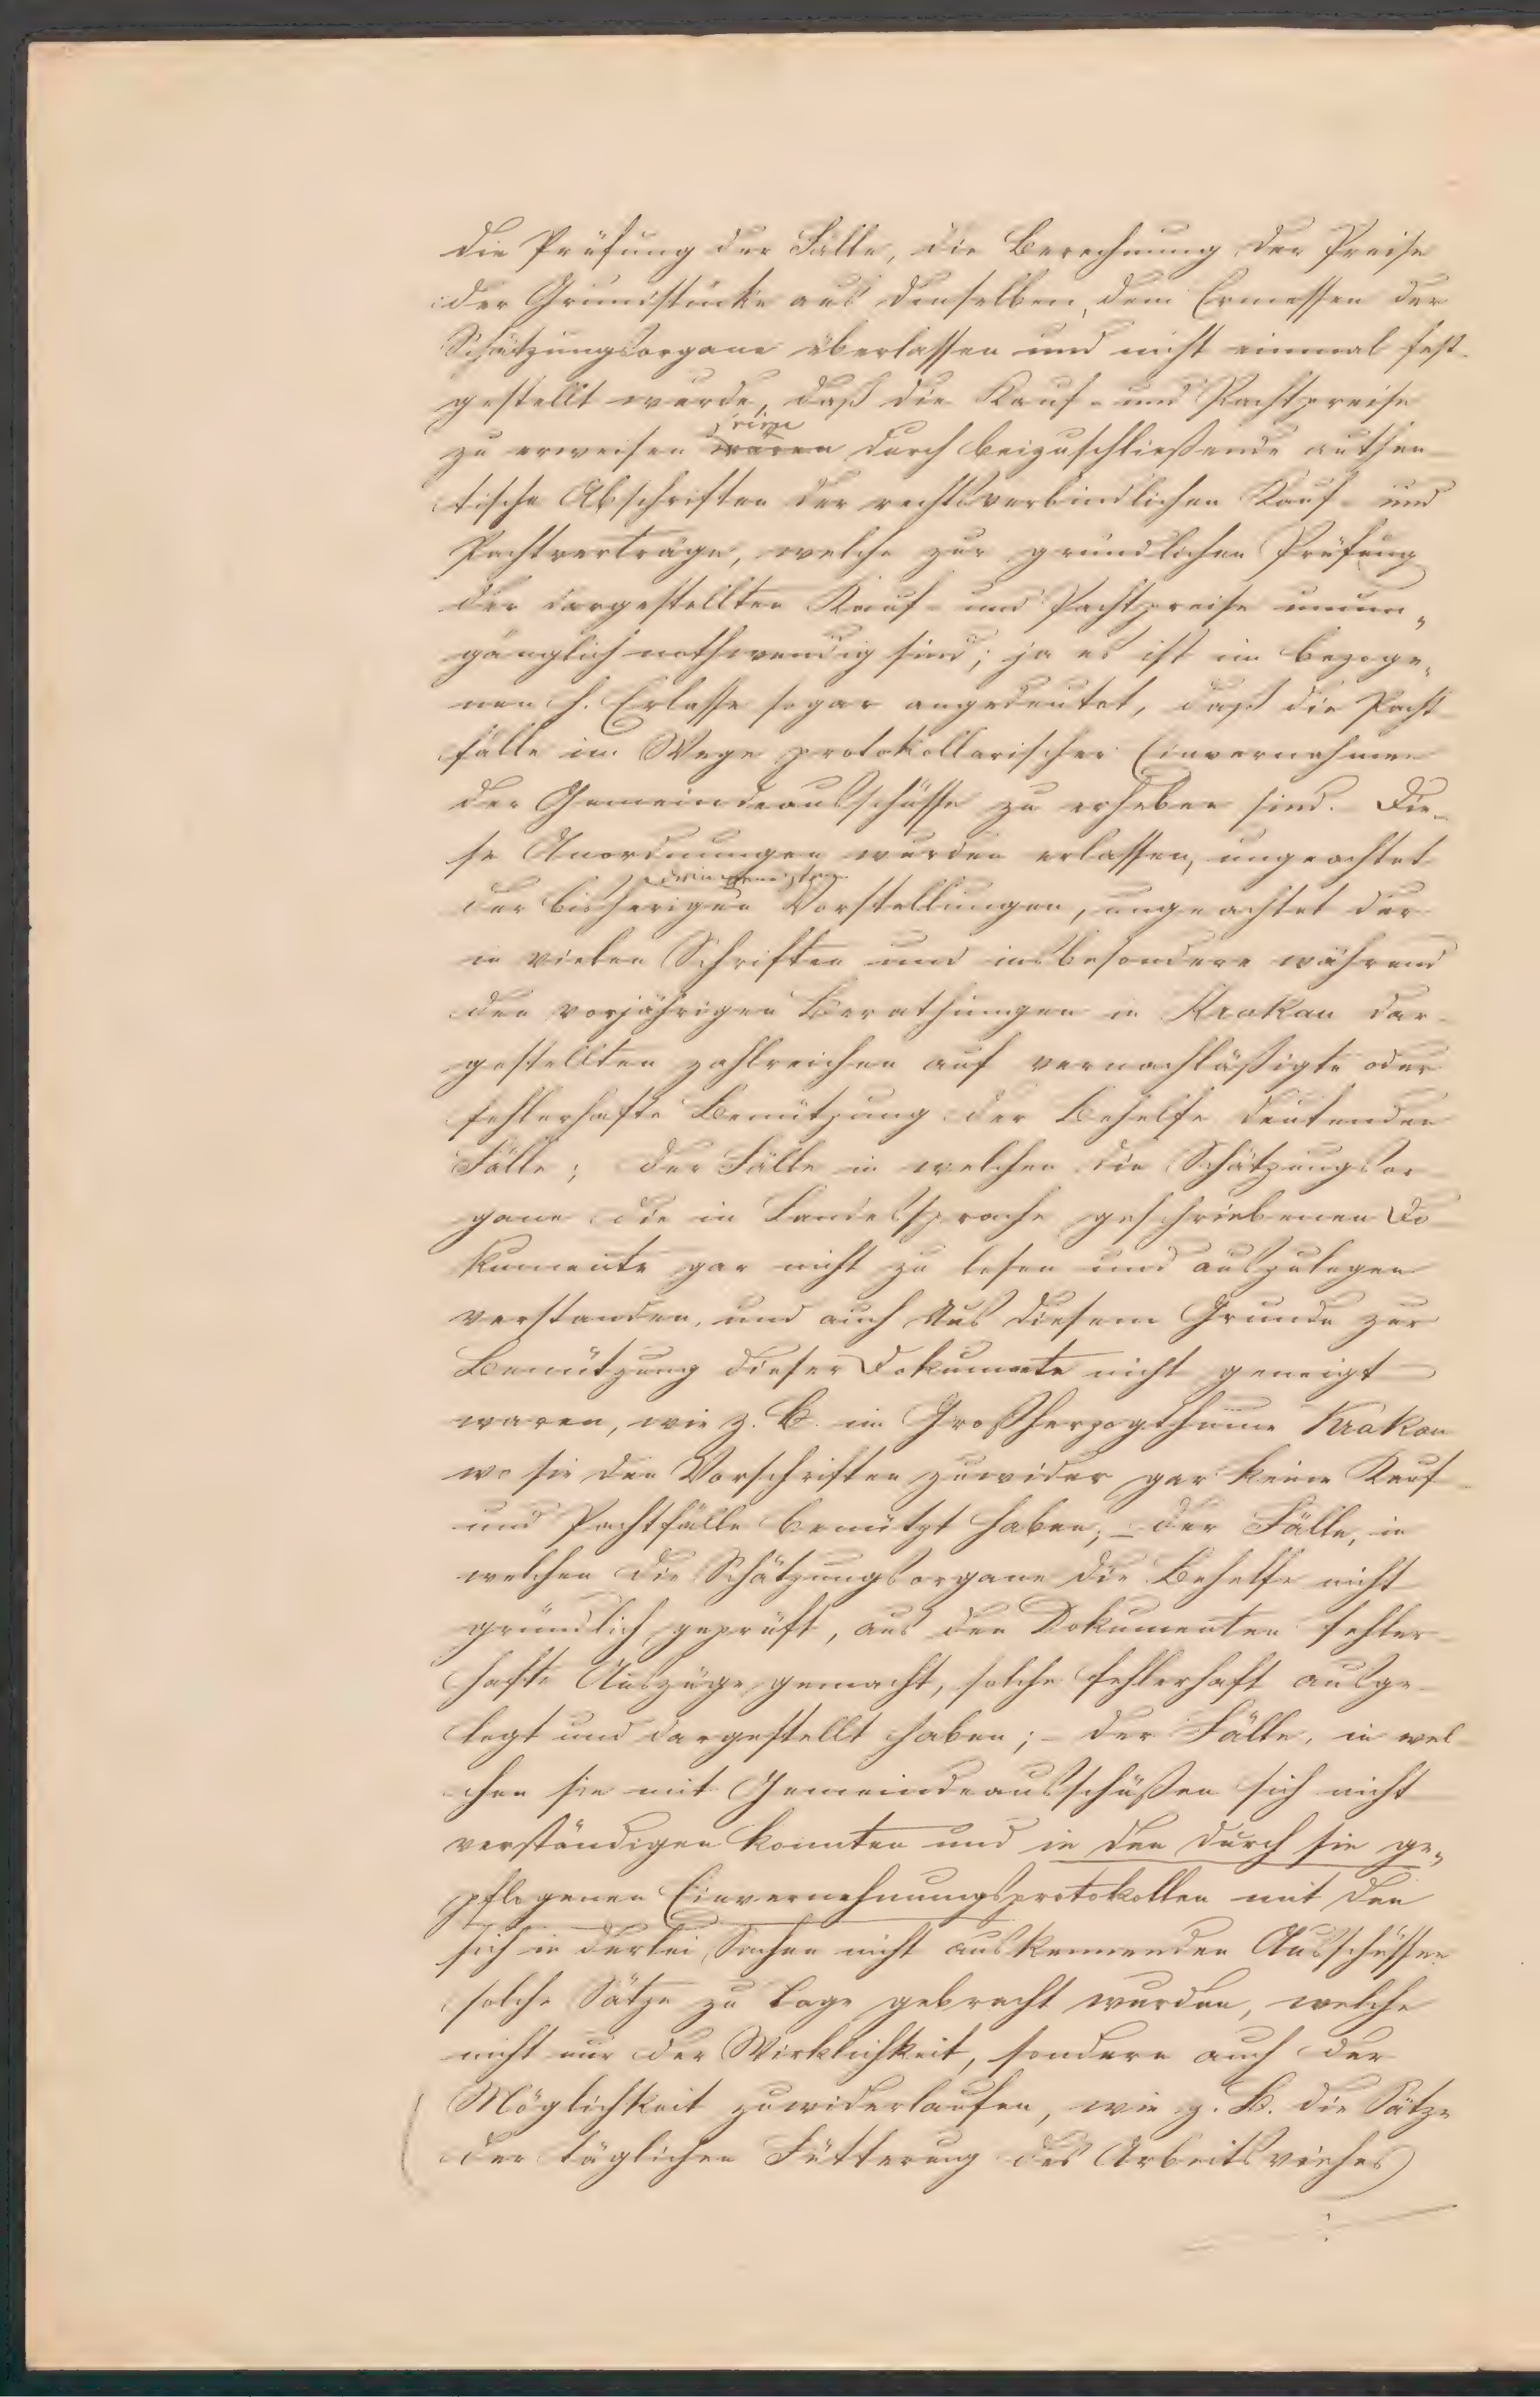 die Prüfung der Fälle, die Berechnung der Preise
der Grundstücke aus denselben, dem Ermessen der
Schätzungsorgane überlassen und nicht einmal fest-
gestellt wurde, daß die Kauf- und Pachtpreise
seien
zu erweisen wären durch beizuschließende authen
tische Abschriften der rechtsverbindlichen Kauf- und
Pachtverträge, welche zur gründlichen Prüfung
der dargestellten Kauf- und Pachtpreise unum„
gänglich nothwendig sind; ja es ist im bezoge„
nen h. Erlasse sogar angedeutet, daß die Pacht
fälle im Wege protokollarischer Einvernahmen
der Gemeindeausschüsse zu erheben sind. Die-
se Anordnungen wurden erlassen, ungeachtet
der bisherigen Vorstellungen, ungeachtet der
in vielen Schriften und insbesondere während
den vorjährigen Berathungen in Krakau dar-
gestellten zahlreichen auf vernachläßigte oder
fehlerhafte Benützung der Behelfe deutenden
Fälle; der Fälle in welchen die Schätzungsor
gane die in Landessprache geschriebenen Do
kumente gar nicht zu lesen und auszulegen
verstanden, und auch aus diesem Grunde zur
Benützung dieser Dokumente nicht geneigt
waren, wie z. B. im Großherzogthume Krakau
wo sie den Vorschriften zuwider gar keine Kauf-
und Pachtfälle benützt haben; – der Fälle, in
welchen die Schätzungsorgane die Behelfe nicht
gründlich geprüft, aus den Dokumenten fehler
hafte Auszüge gemacht, solche fehlerhaft ausge-
legt und dargestellt haben; – der Fälle, in wel
chen sie mit Gemeindeausschüßen sich nicht
verständigen konnten und in den durch sie ge„
pflogenen Einvernehmungsprotokollen mit den
sich in derlei Sachen nicht auskennenden Ausschüssen
solche Sätze zu Tage gebracht wurden, welche
nicht nur der Wirklichkeit, sondern auch der
Möglichkeit zuwiderlaufen, wie z. B. die Sätze
der täglichen Fütterung des Arbeitsviehes)